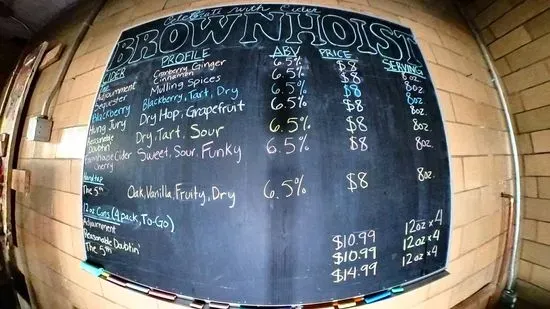 Celebrate with Cider
BROWNHOIST
CIDER PROFILE ABV PRICE SERVING
Cranberry Ginger 6.5% $8 8oz.
Adjournment Cinnamon
Sequester Mulling Spices 6.5% $8 8oz
Blackberry Blackberry, Tart, Dry 6.5% $8 8oz
Hung Jury Dry Hop, Grapefruit 6.5% $8 8oz.
Reasonable Doubtin' Dry, Tart, Sour 6.5% $8 8oz.
Farmhouse Cider Cherry Sweet, Sour, Funky 6.5% $8 8oz.
The 5th Oak, Vanilla, Fruity, Dry 6.5% $8 8oz.
12oz Cans (4 pack, To-Go)
Adjournment $10.99 12oz x 4
Reasonable Doubtin' $10.99 12oz x 4
The 5th $14.99 12oz x 4